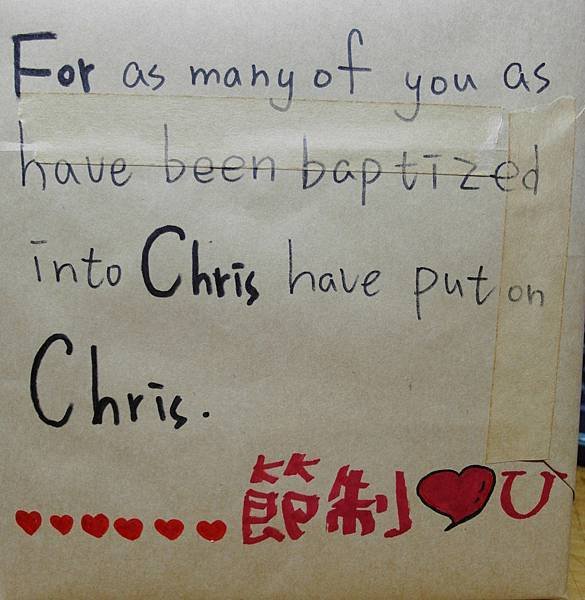 For as many of you as
have been baptized
into Chris have put on
Chris.
節制 ❤ U